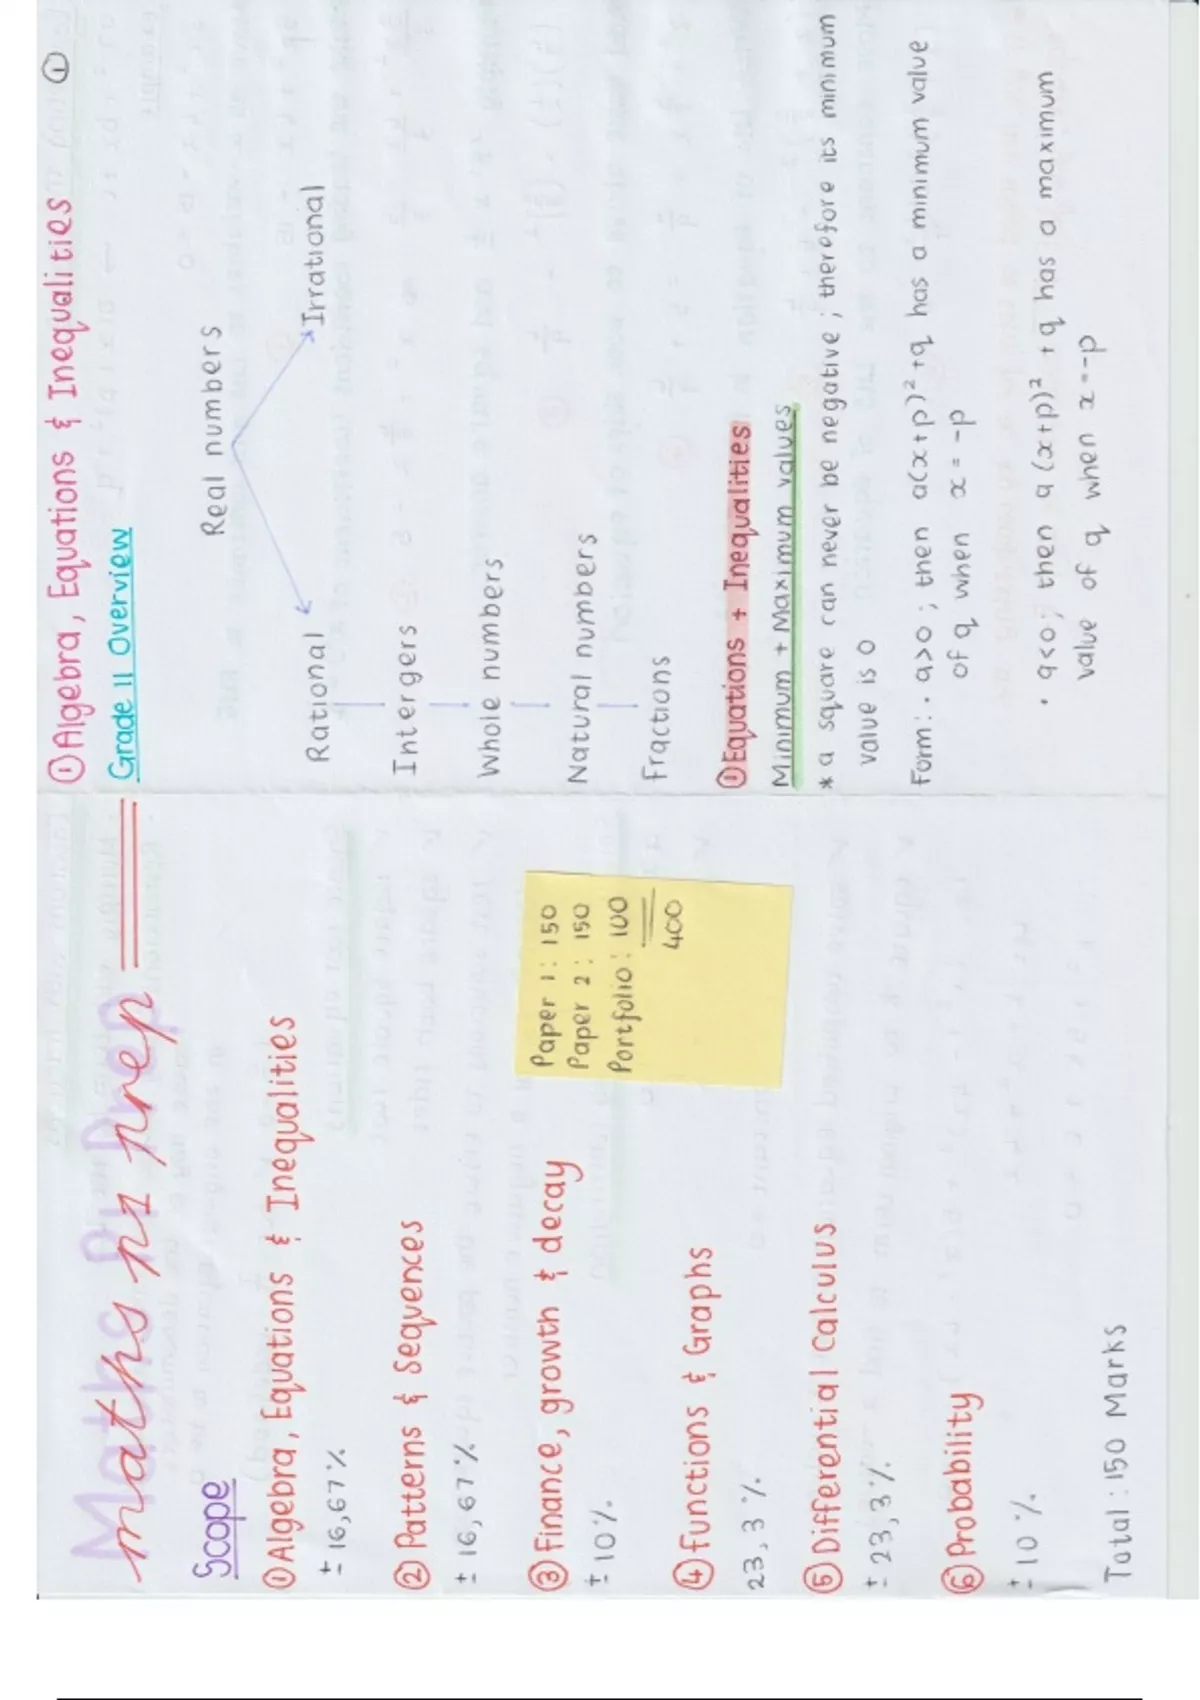 maths p1 prep
Scope
① Algebra, Equations & Inequalities
± 16,67%
② Patterns & Sequences
± 16,67%
③ Finance, growth & decay
± 10%
④ Functions & Graphs
23,3%
⑤ Differential Calculus
± 23,3%
⑥ Probability
± 10%
Total : 150 Marks
Paper 1 : 150
Paper 2 : 150
Portfolio : 100
400
① Algebra, Equations & Inequalities ①
Grade 11 Overview
Real numbers
Rational
Irrational
Intergers
Whole numbers
Natural numbers
Fractions
① Equations + Inequalities
Minimum + Maximum values
* a square can never be negative ; therefore its minimum
value is 0
Form: · a>0 ; then a(x+p)² + q has a minimum value
of q when x = -p
· a<0; then a (x+p)² + q has a maximum
value of q when x = -p